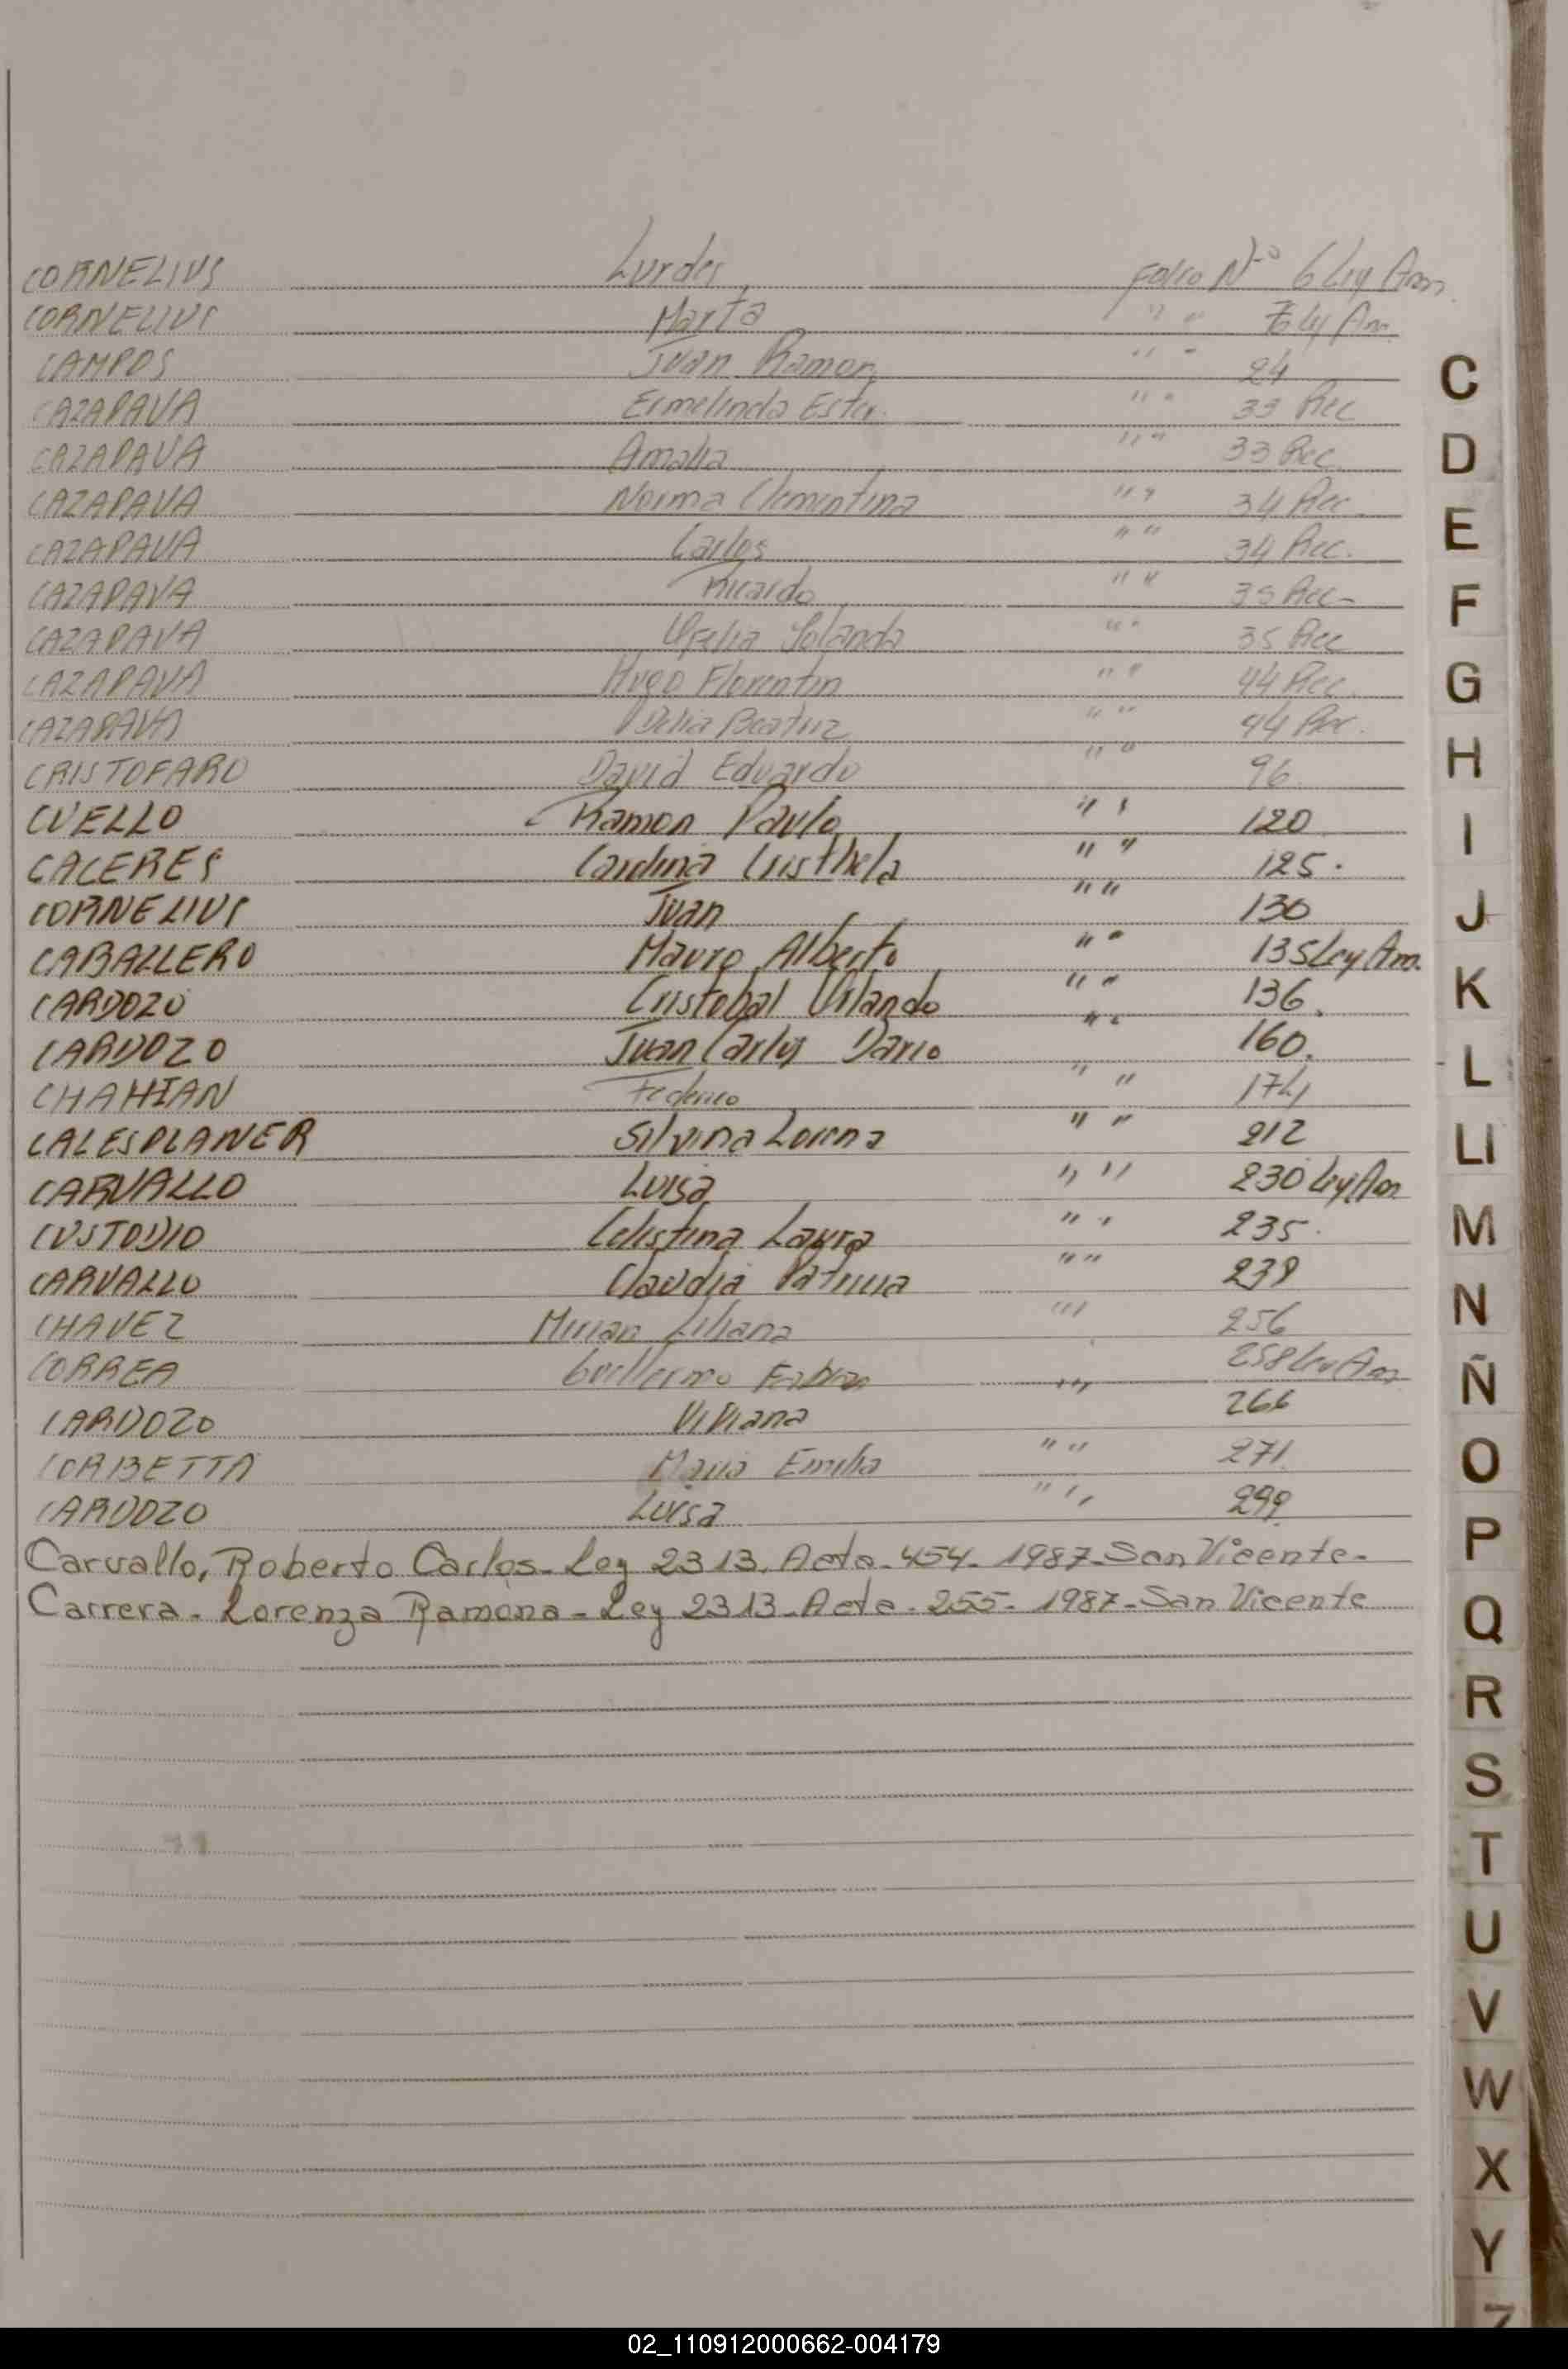 CORNELIUS Lurdes Folio Nº 6 Ley Am.
CORNELIUS Marta " " 7 Ley Am.
CAMPOS Juan Ramon " " 24
CAZAPAVA Ermelinda Ester " " 33 Rec
CAZAPAVA Amalia " " 33 Rec.
CAZAPAVA Norma Clementina " " 34 Rec.
CAZAPAVA Carlos " " 34 Rec.
CAZAPAVA Ricardo " " 35 Rec-
CAZAPAVA Ofelia Yolanda " " 35 Rec
CAZAPAVA Hugo Florentin " " 44 Rec.
CAZAPAVA Delia Beatriz " " 44 Rec.
CRISTOFARO David Eduardo " " 96.
CUELLO Ramon Paulo " " 120
CACERES Cristhela " " 125.
CORNELIUS Juan " " 130
CABALLERO Mauro Alberto " " 135 Ley Am.
CARDOZO Cristobal Orlando " " 136.
CARDOZO Juan Carlos Dario " " 160.
CHAHIAN Federico " " 174
CALESPLANER Silvina Lorena " " 212
CARVALLO Luisa " " 230 Ley Am
CUSTODIO Celistina Laura " " 235.
CARVALLO Claudia Patricia " " 239
CHAVEZ Mirian Liliana " " 256
CORREA Guillermo Fabian " " 258 Ley Am
CARDOZO Viviana 266
CORBETTA Maria Emilia " " 271.
CARDOZO Luisa " " 299.
Carvallo, Roberto Carlos- Ley 2313. Acta- 454- 1987- San Vicente-
Carrera- Lorenza Ramona- Ley 2313- Acta- 255- 1987- San Vicente
C
D
E
F
G
H
I
J
K
L
Ll
M
N
Ñ
O
P
Q
R
S
T
U
V
W
X
Y
Z
02_110912000662-004179